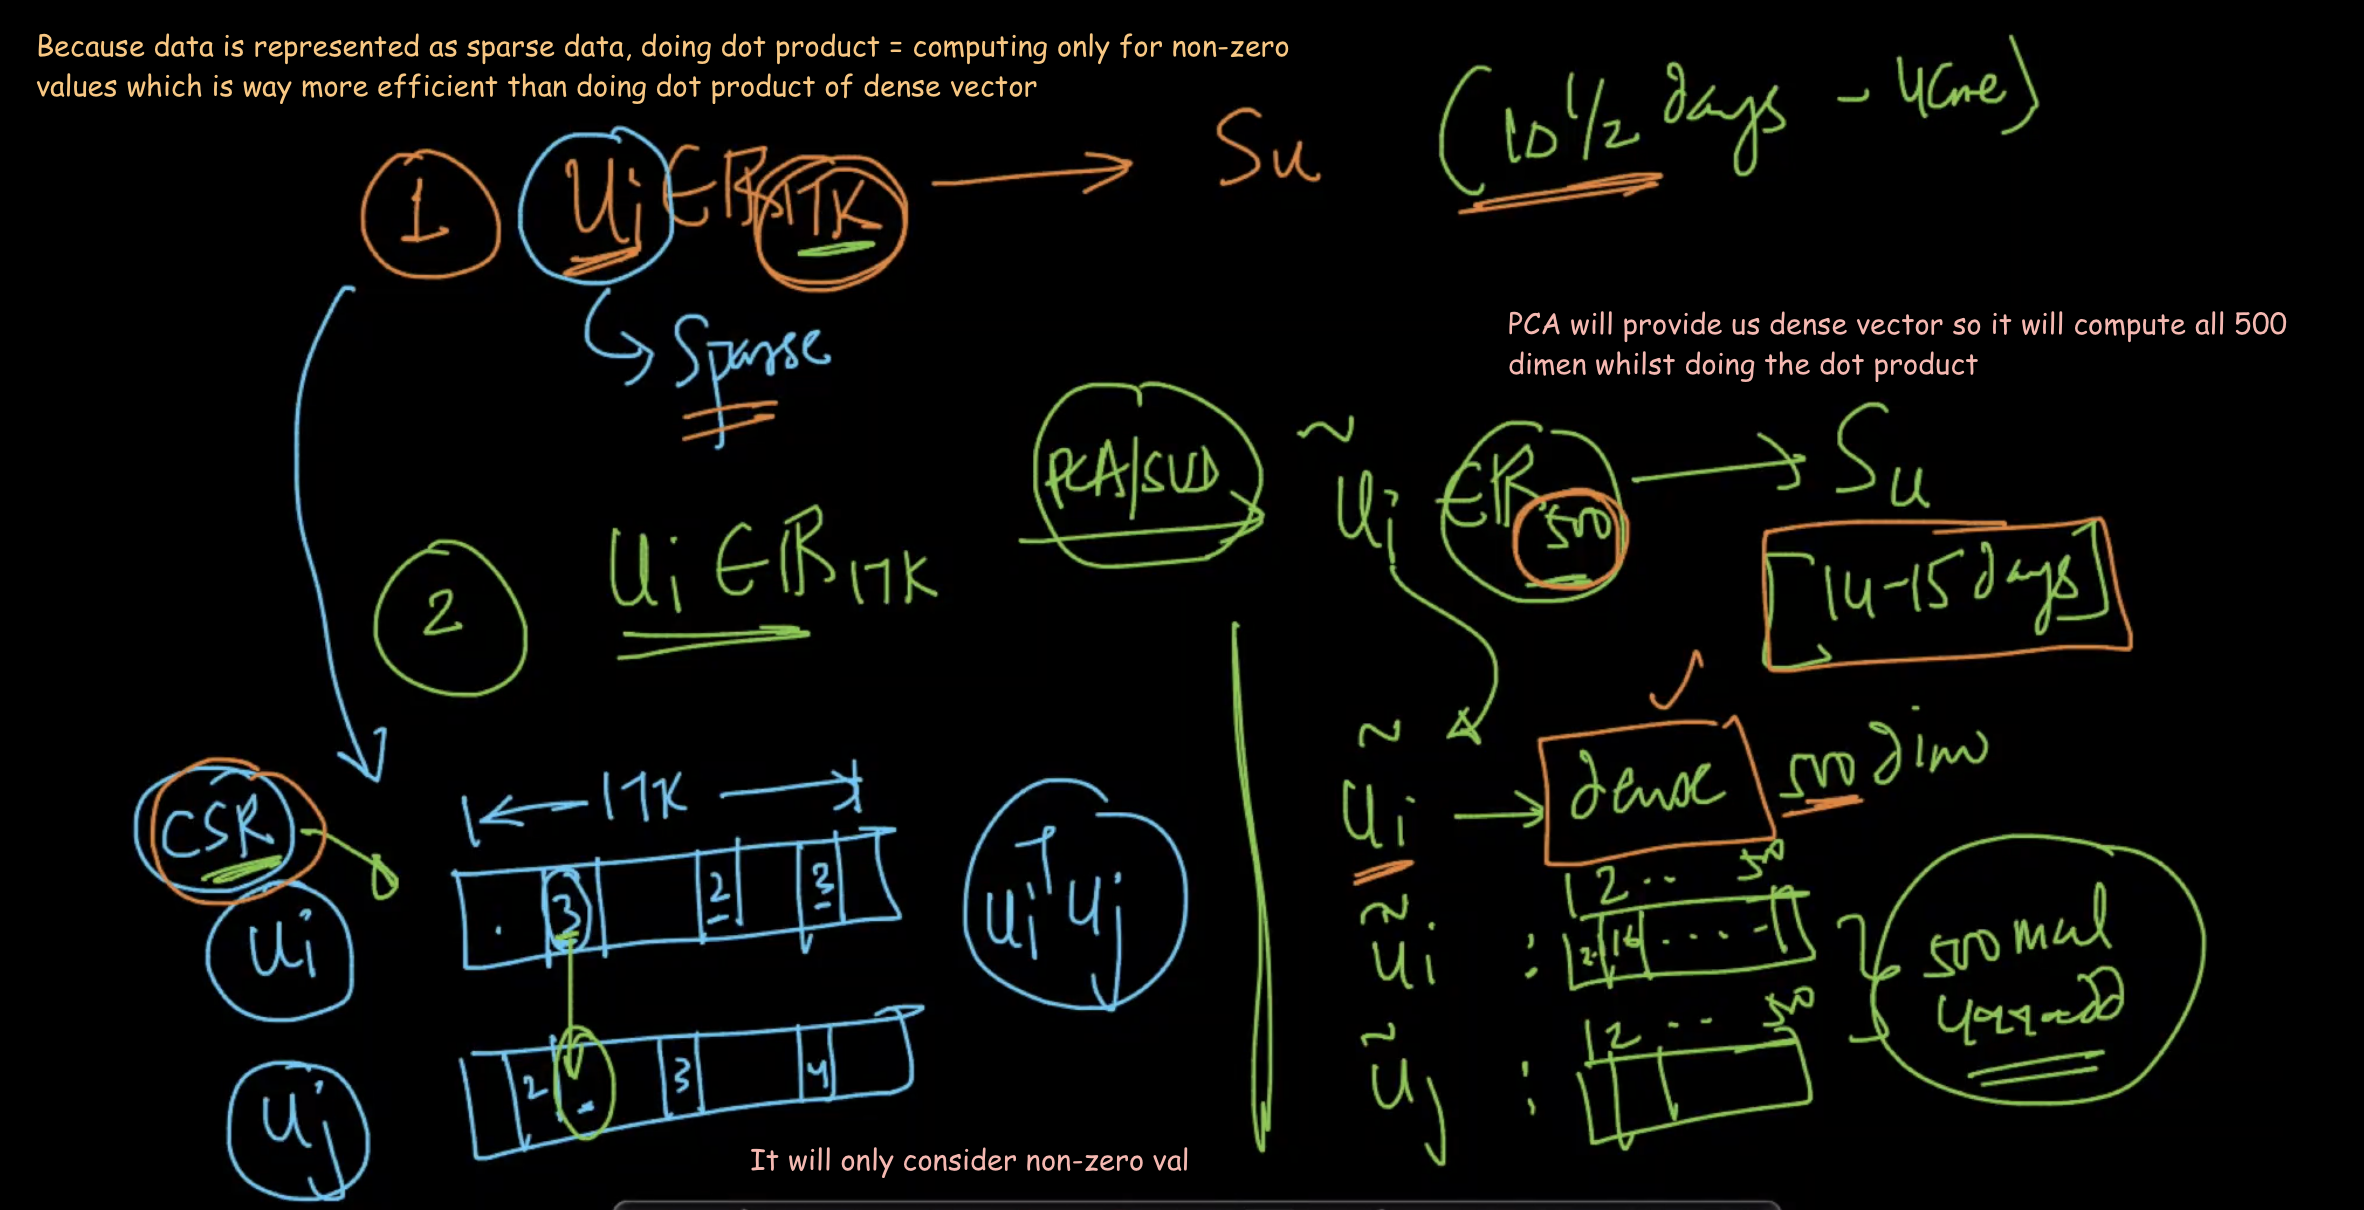 Because data is represented as sparse data, doing dot product = computing only for non-zero
values which is way more efficient than doing dot product of dense vector
1 Ui ∈ R 17K → Su (10 1/2 days -
Sparse
PCA will provide us dense vector so it will compute all 500
dimen whilst doing the dot product
2 Ui ∈ R 17K PCA/SVD → ~Ui ∈ R 500 → Su
[14-15 days]
CSR ← 17K →
~Ui → dense 500 dim
Ui . 3 2 3
UiᵀUj
~Ui : 1 2 .. 500
2. 16 . . . . -
500 mul
Uj 2 - 3 4
~Uj : 1 2 .. 500
It will only consider non-zero val